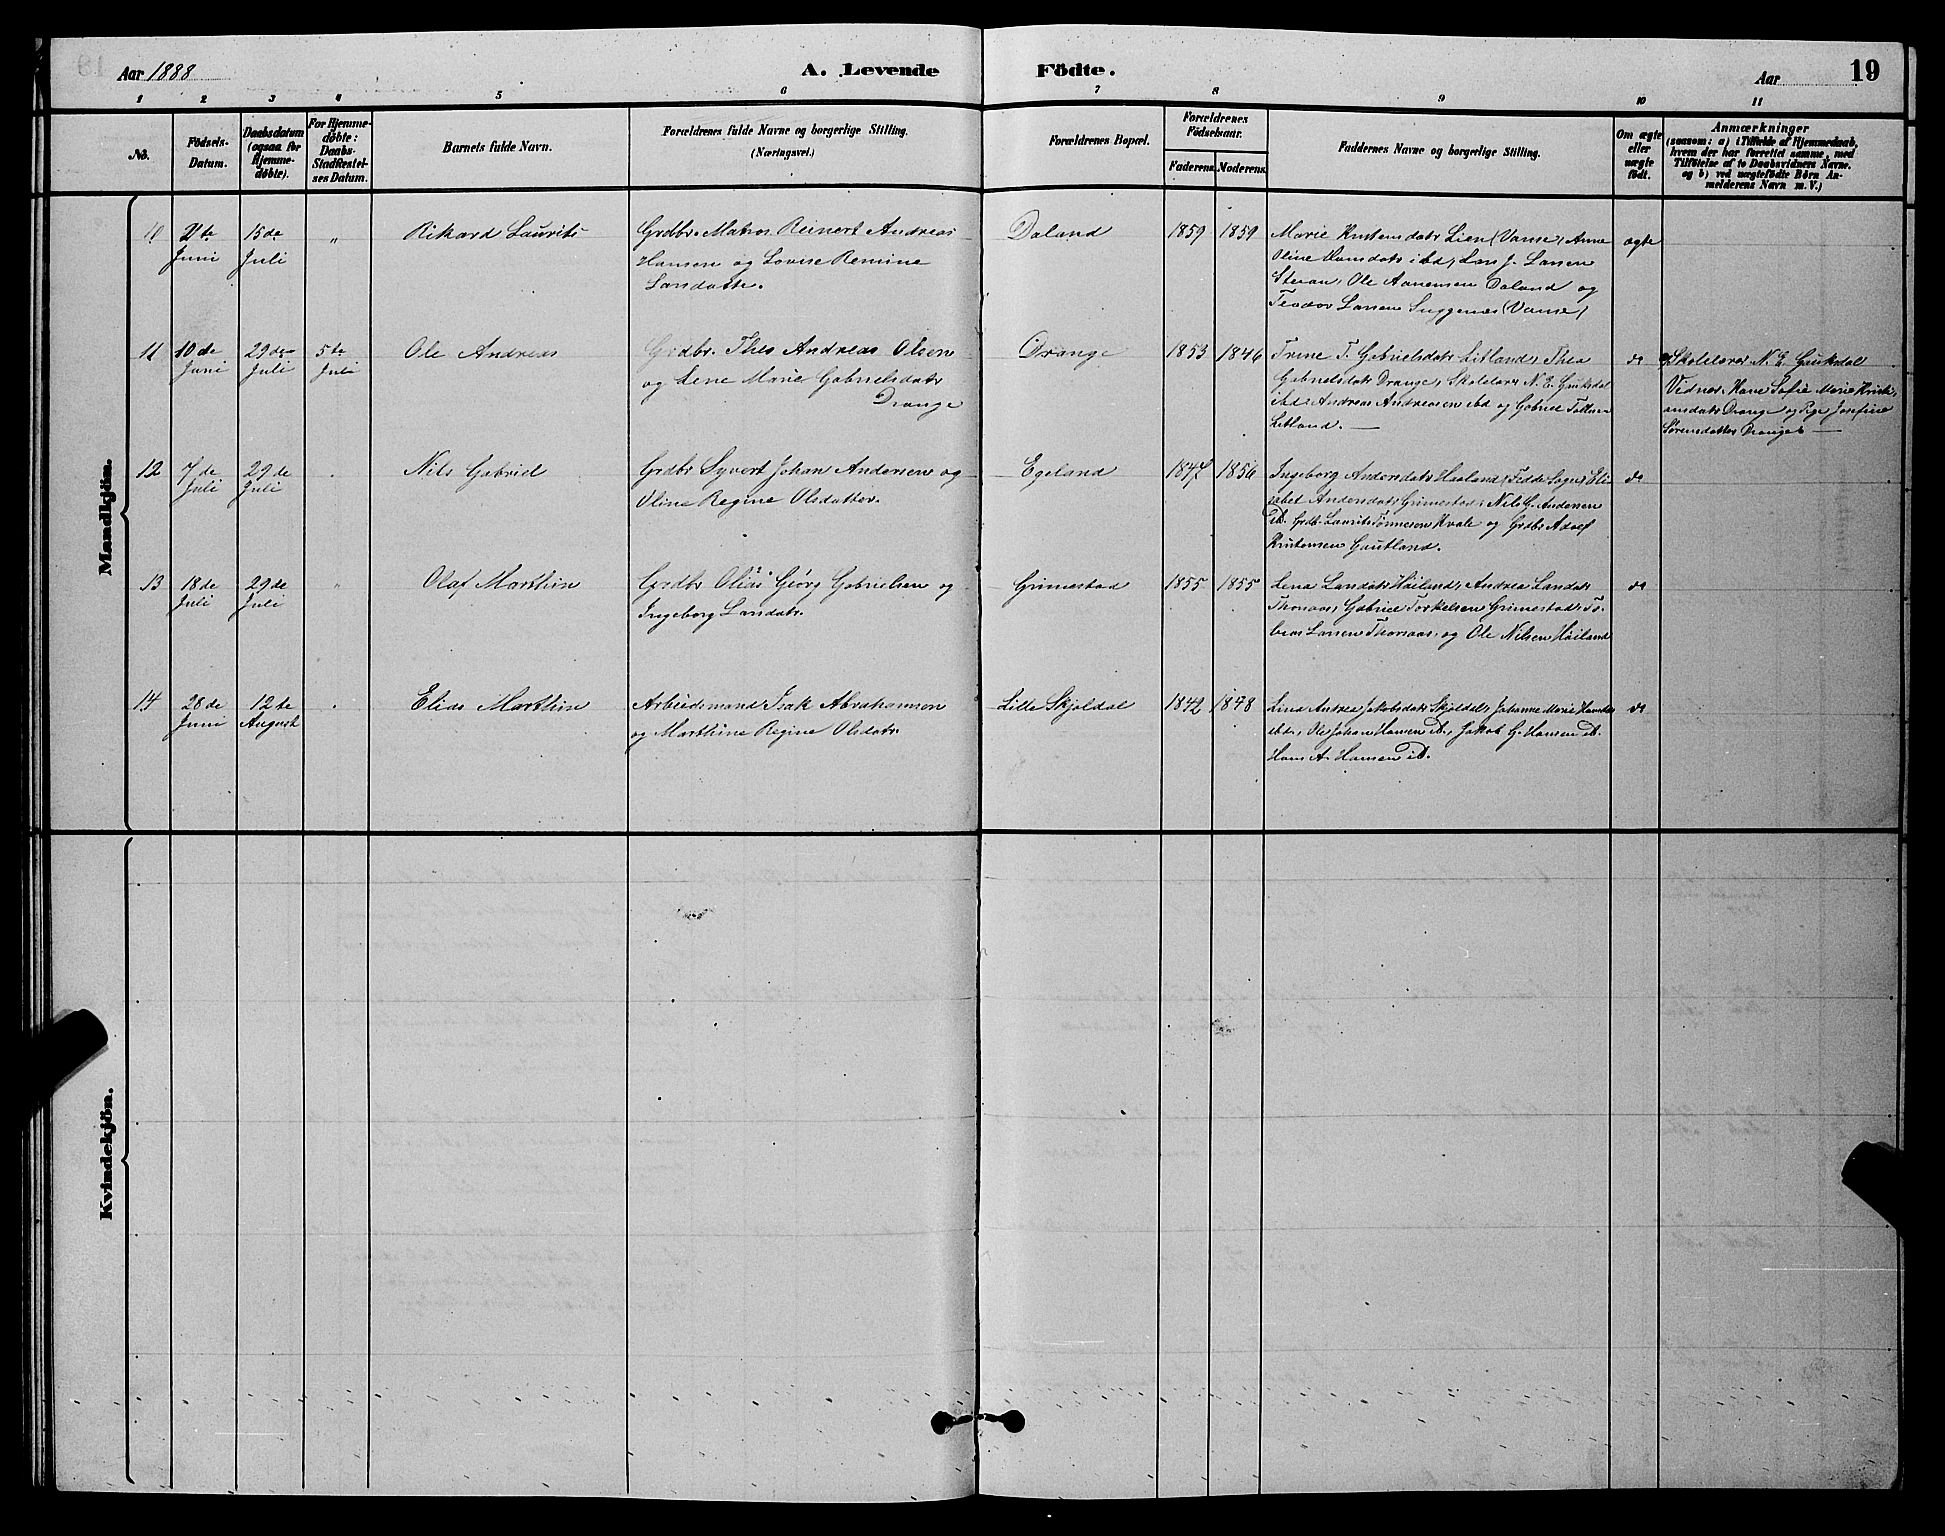 Aar 1888
A. Levende Födte.
Aar
19
1 2 3 4 5 6 7 8 9 10 11
No.
Födsels-Datum.
Daabsdatum (ogsaa for Hjemmedöbte).
For Hjemmedöbte: Daabs-Stadfestelses Datum.
Barnets fulde Navn.
Forældrenes fulde Navne og borgerlige Stilling.
(Næringsvei.)
Forældrenes Bopæl.
Forældrenes Födselsaar.
Faderens. Moderens.
Faddernes Navne og borgerlige Stilling.
Om ægte eller uægte födt.
Anmærkninger
(saasom: a) i Tilfælde af Hjemmedaab, hvem der har forrettet samme, med Tilföielse af to Daabsvidners Navne. og b) ved uægtefödte Börn Anmelderens Navn m. V.)
Mandkjön.
10 2te Juni 15de Juli " Rikard Laurits
Grdbr. Matros Reinert Andreas
Hansen og Lovise Remine
Larsdatter.
Daland 1859 1859
Marie Kristensdatr Lien (Vanse), Anne
Oline Hansdatr ibd, Lars J. Larsen
Ole Aanensen Daland og
Teodor Larsen (Vanse)
ægte
11 10de Juni 29de Juli 5te Juli Ole Andreas
Grdbr. Ths Andreas Olsen
og Lene Marie Gabrielsdatr
Drange
Drange 1853 1846
Trine T. Gabrielsdatr Litland, Thea
Gabrielsdatr Drange, Skolelærer N. E.
ibd, Andreas Andreasen ibd og Gabriel
Litland. —
do
Skolelærer N. E.
Vidner: Kone Sofie Marie Kristiansdatr Drange og Pige Josefine
Sörensdatter Drange —
12 7de Juli 29de Juli Nils Gabriel
Grdbr Syvert Johan Andersen og
Oline Regine Olsdatter.
Egeland 1847 1856
Ingeborg Andersdatr Haaland, Fedde Sogn, Elisabet Andersdatr Grimestad, Nils G. Andersen
ib. Grdb. Laurits Tönnesen Kvale og Grdbr Adolf
Kristensen Gautland.
do
13 18de Juli 29de Juli " Olaf Marthin
Grdbr Olias Georg Gabrielsen og
Ingeborg Larsdatr.
Grimestad 1855 1855
Lena Larsdatr Höiland, Andrea Larsdatr
Gabriel Torkelsen Grimestad, Tobias Larsen og Ole Nilsen Höiland
do
14 28de Juni 12te August Elias Marthin
Arbeidsmand Isak Abrahamsen
og Marthine Regine Olsdatr.
Lille Skjoldal 1842 1848
Lina Andrea Jakobsdatr Skjoldal, Johanne Marie Hansdr
ibd, Ole Johan Hansen ib., Jakob G. Hansen ib.
Hans A. Hansen ib.
do
Kvindekjön.